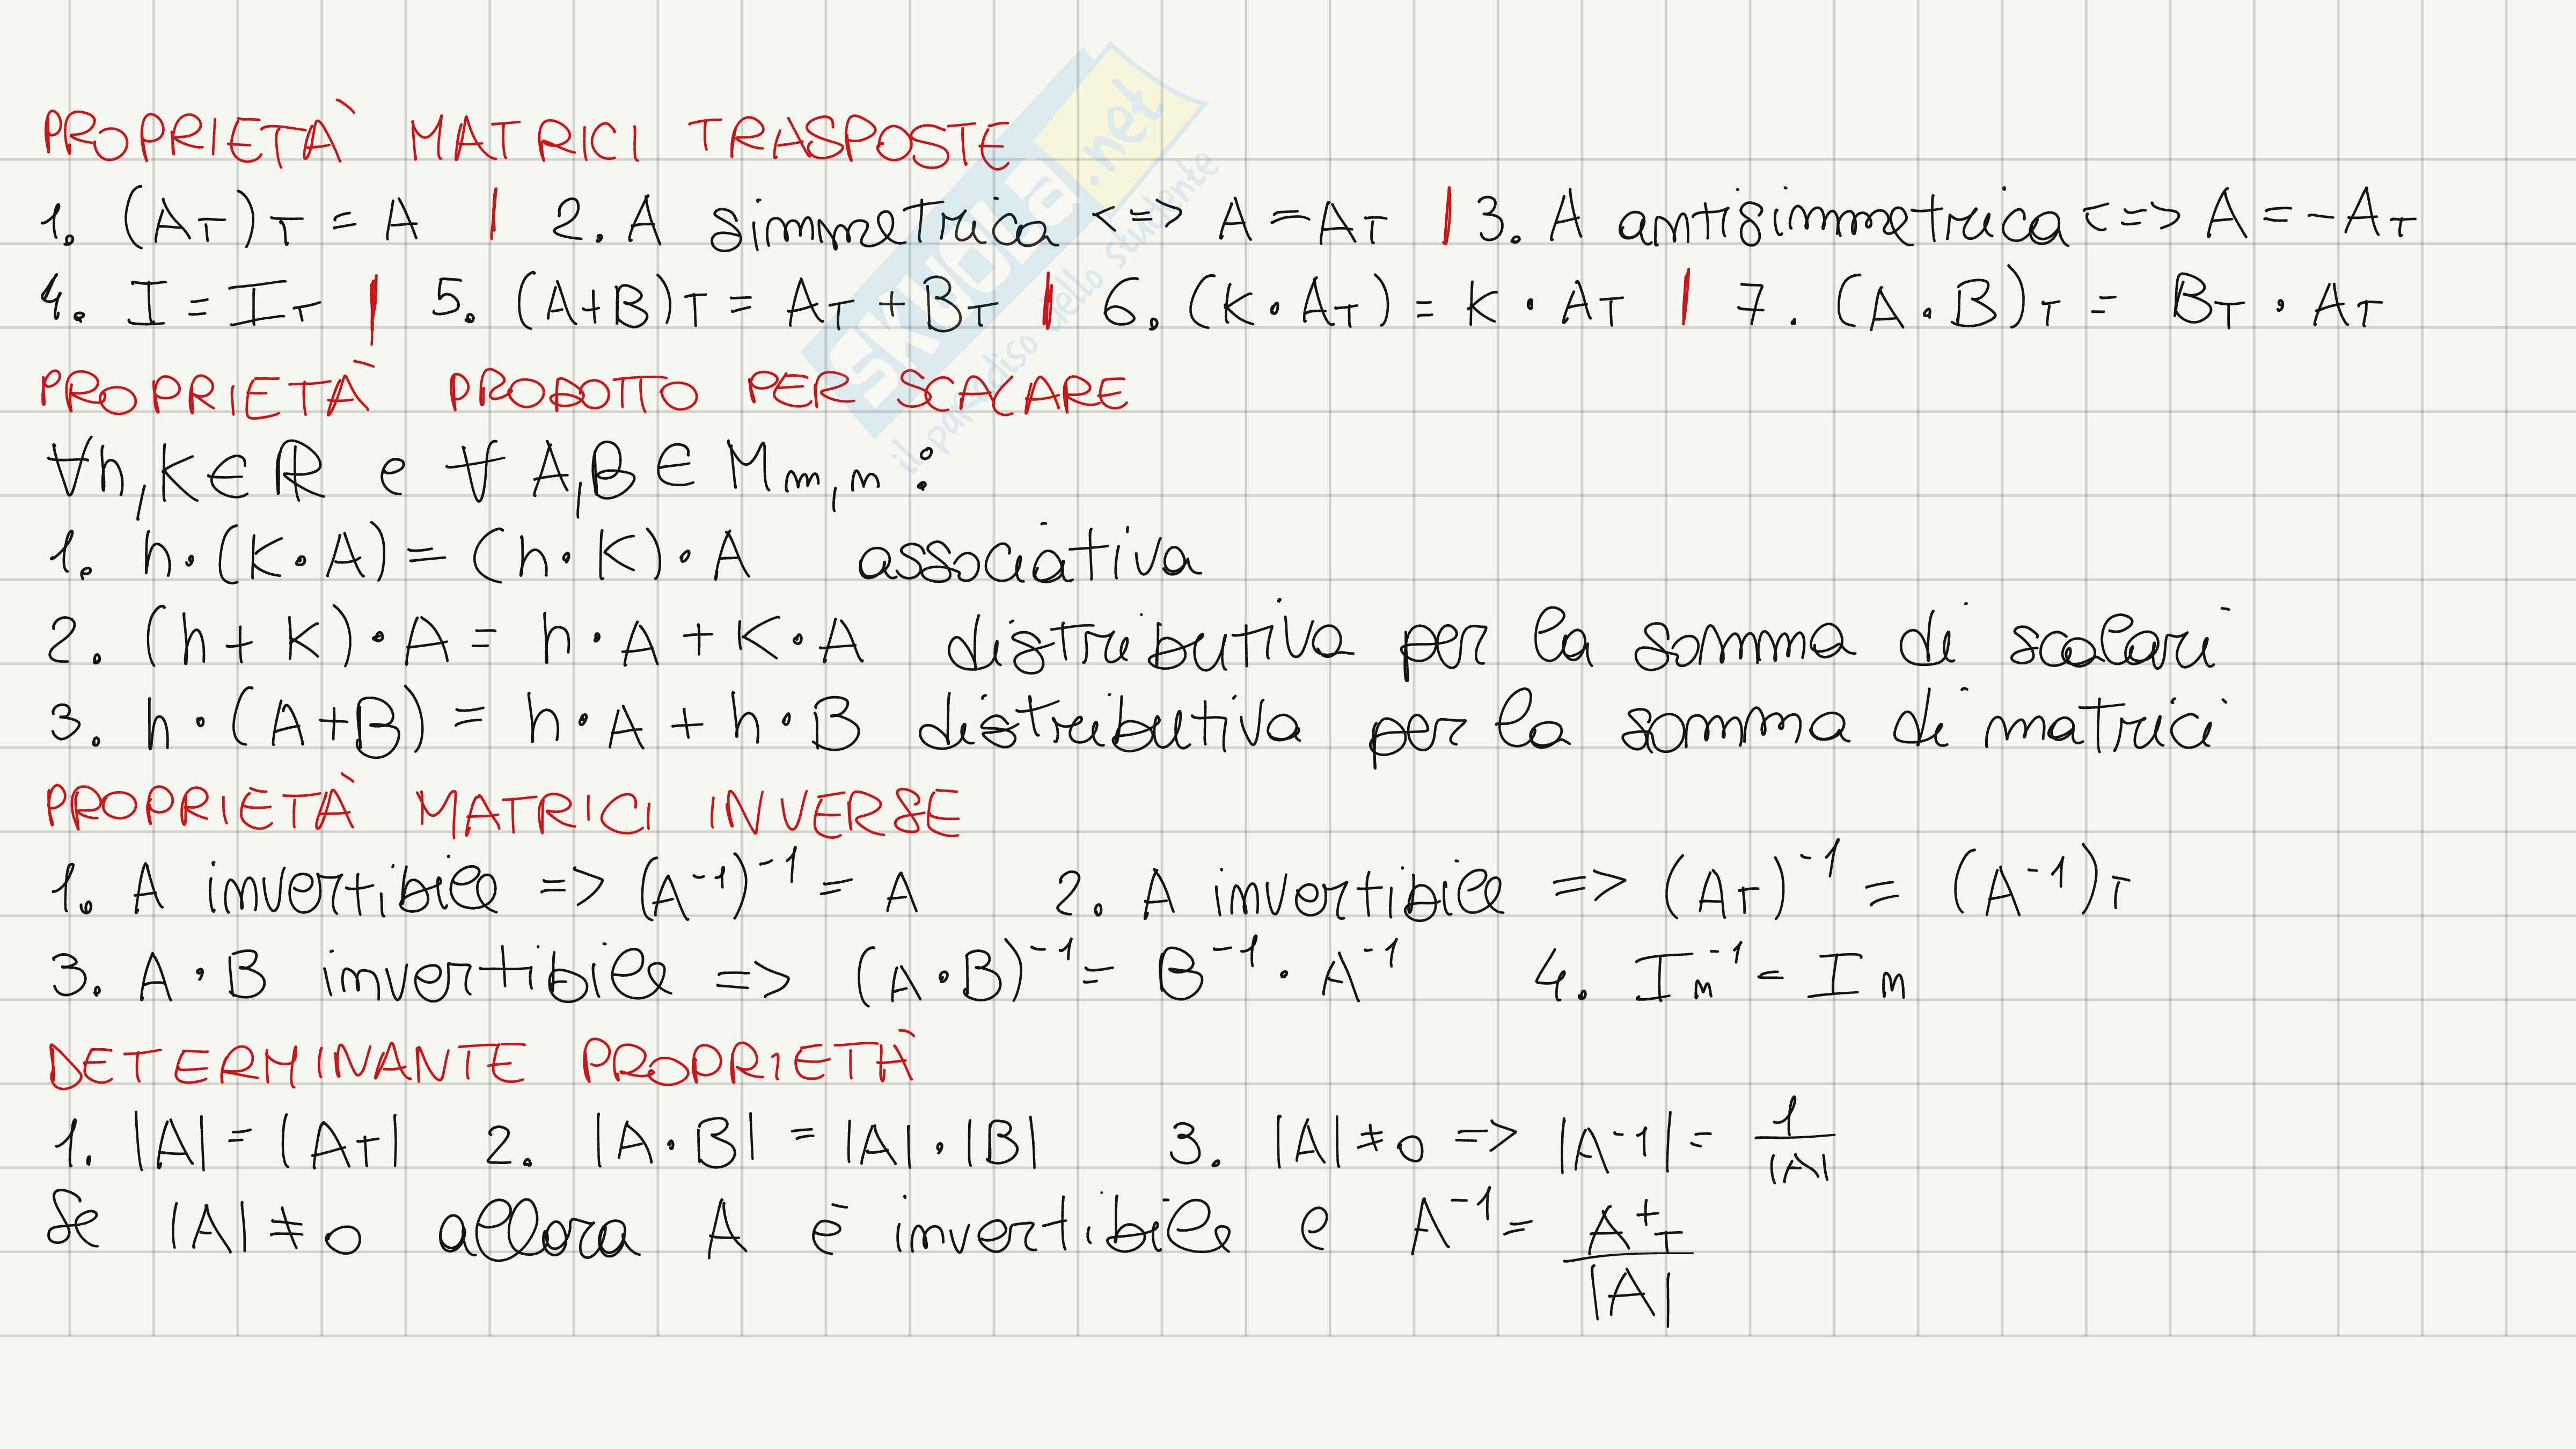 PROPRIETÀ MATRICI TRASPOSTE
1. (A_T)_T = A | 2. A simmetrica <=> A = A_T | 3. A antisimmetrica <=> A = -A_T
4. I = I_T | 5. (A+B)_T = A_T + B_T | 6. (K·A_T) = K·A_T | 7. (A·B)_T = B_T·A_T
PROPRIETÀ PRODOTTO PER SCALARE
∀h,K∈ℝ e ∀ A,B∈M_m,n:
1. h·(K·A) = (h·K)·A associativa
2. (h+K)·A = h·A + K·A distributiva per la somma di scalari
3. h·(A+B) = h·A + h·B distributiva per la somma di matrici
PROPRIETÀ MATRICI INVERSE
1. A invertibile => (A⁻¹)⁻¹ = A 2. A invertibile => (A_T)⁻¹ = (A⁻¹)_T
3. A·B invertibile => (A·B)⁻¹ = B⁻¹·A⁻¹ 4. I_n⁻¹ = I_n
DETERMINANTE PROPRIETÀ
1. |A| = |A_T| 2. |A·B| = |A|·|B| 3. |A| ≠ 0 => |A⁻¹| = 1/|A|
Se |A| ≠ 0 allora A è invertibile e A⁻¹ = A⁺_T/|A|
SKUOLA.net
il paradiso dello studente